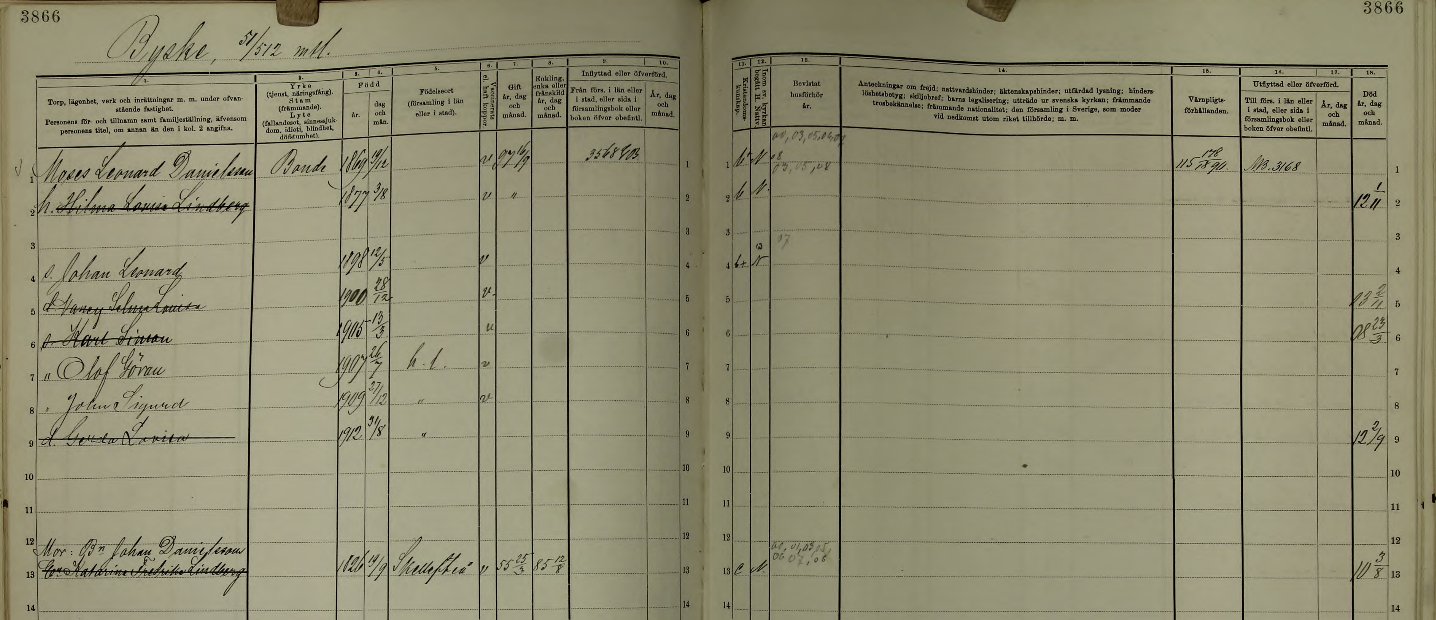 3866
3866
Byske, 51/512 mtl.
1.
2.
3.
4.
5.
6.
7.
8.
9.
10.
Torp, lägenhet, verk och inrättningar m. m. under ofvanstående fastighet.
Personens för- och tillnamn samt familjeställning, äfvensom personens titel, om annan än den i kol. 2 angifna.
Yrke
(tjenst, näringsfång).
Stam
(främmande).
Lyte
(fallandesot, sinnessjukdom, idioti, blindhet, döfstumhet).
Född
år.
dag och mån.
Födelseort
(församling i län eller i stad).
Gift
år, dag och månad.
Enkling, enka eller frånskild år, dag och månad.
Inflyttad eller öfverförd.
Från förs. i län eller i stad, eller sida i församlingsbok eller boken öfver obefintl.
År, dag och månad.
11.
12.
13.
14.
15.
16.
17.
18.
Kristendomskunskap.
Bevistat husförhör år.
Anteckningar om frejd; nattvardshinder; äktenskapshinder; utfärdad lysning, hinderslöshetsbetyg; skiljobref; barns legalisering; utträde ur svenska kyrkan; främmande trosbekännelse; främmande nationalitet; den församling i Sverige, som moder vid nedkomst utom riket tillhörde; m. m.
Värnpligtsförhållanden.
Utflyttad eller öfverförd.
Till förs. i län eller i stad, eller sida i församlingsbok eller boken öfver obefintl.
År, dag och månad.
Död
år, dag och månad.
1 Moses Leonard Danielsson Bonde 1869 19/12 v 97 16/9 3568 03 1
1 b N 03, 05, 08 115 94 NB. 3168 1
2 h. Hilma Lovisa Lindberg 1877 3/8 v " 2
2 b N 12 1/11 2
3 3
3 07 3
4 s. Johan Leonard 1898 12/5 v 4
4 b+ N 4
5 d. Nancy Selma Lovisa 1900 28/12 v 5
5 03 2/11 5
6 s. Karl Simon 1905 13/3 v 6
6 08 23/3 6
7 " Olof Göran 1907 26/7 h. t. v 7
7 7
8 " John Sigurd 1909 27/12 " v 8
8 8
9 d. Gerda Lovisa 1912 31/8 " 9
9 12 2/9 9
10 10
10 10
11 11
11 11
12 Mor: Bn Johan Danielsson 12
12 12
13 Katarina Fredrika Lindberg 1826 19/9 Skellefteå v 55 25/3 85 12/8 13
13 c N 06 07, 08 10 3/8 13
14 14
14 14